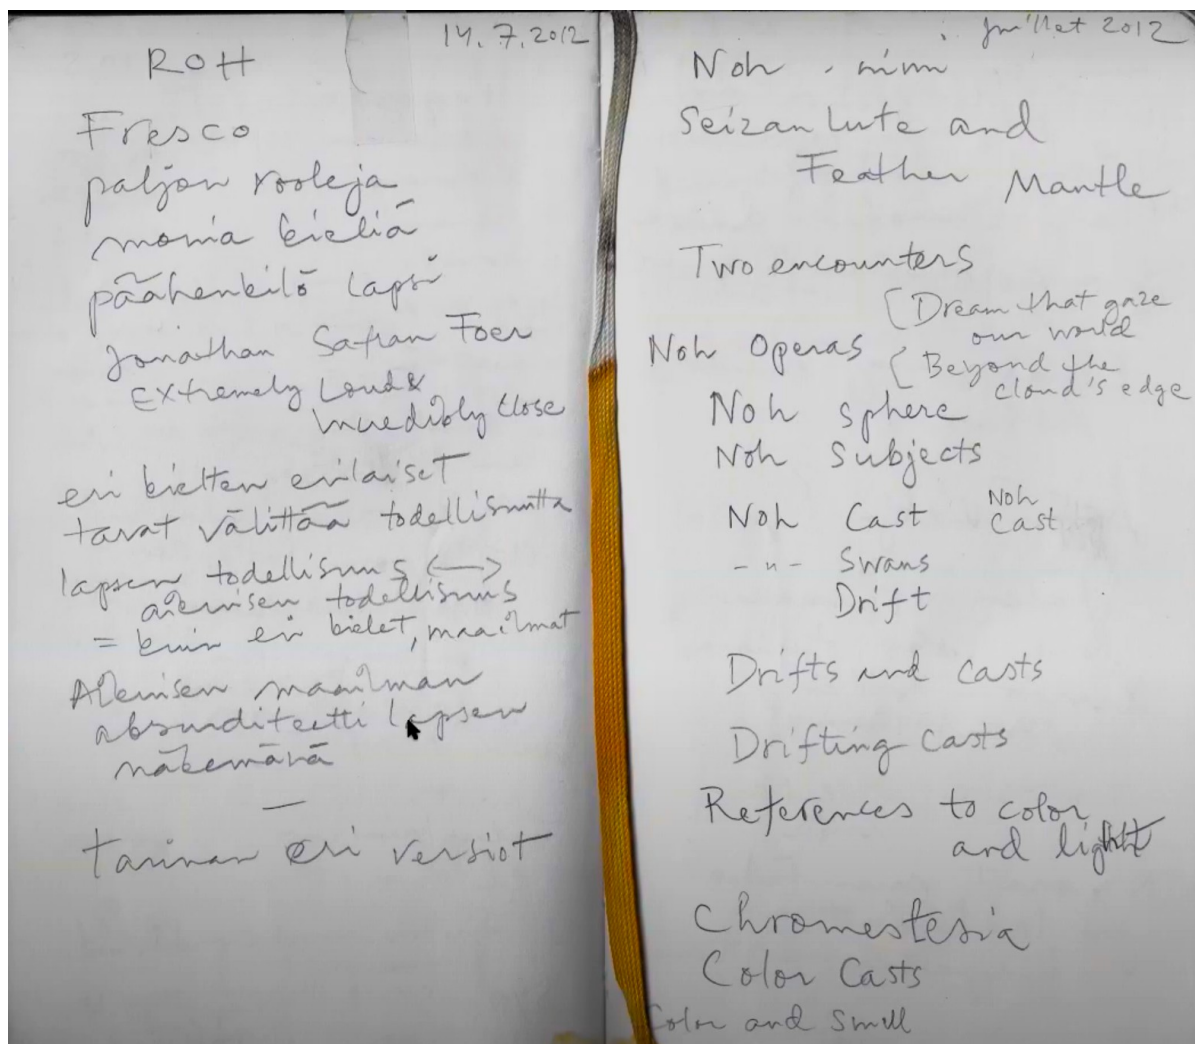 14.7.2012
ROH
Fresco
paljon rooleja
monia kieliä
päähenkilö lapsi
Jonathan Safran Foer
Extremely Loud &
Incredibly Close
eri kielten erilaiset
tavat välittää todellisuutta
lapsen todellisuus <—>
aikuisen todellisuus
= kuin eri kielet, maailmat
Aikuisen maailman
absurditeetti lapsen
näkemänä
—
tarinan eri versiot
Juillet 2012
Noh . nimi
Seizan Lute and
Feather Mantle
Two encounters
[Dream that gaze
our world
Noh Operas
[Beyond the
cloud's edge
Noh sphere
Noh Subjects
Noh Cast Noh
Cast
- " - Swans
Drift
Drifts and casts
Drifting casts
References to color
and light
Chromestesia
Color Casts
Color and Smell